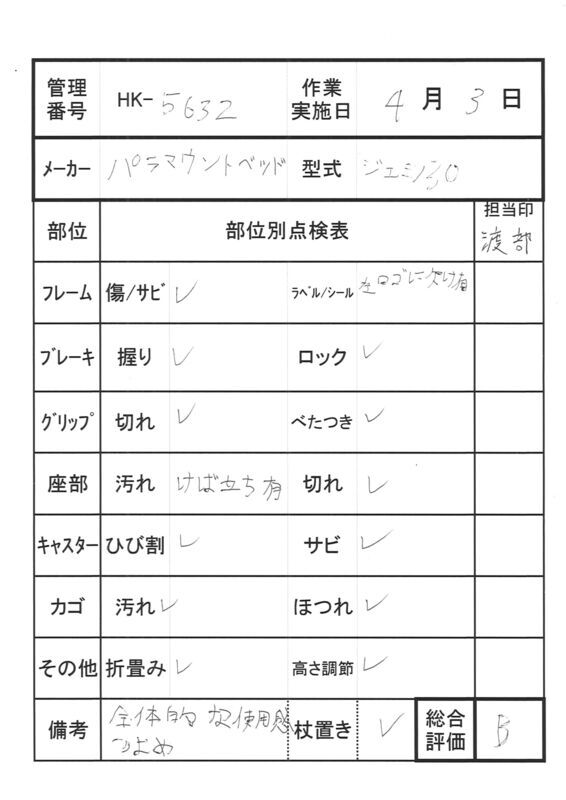 管理番号 HK-5632 作業実施日 4月3日
メーカー パラマウントベッド 型式 ジェミノ30
部位 部位別点検表 担当印 渡部
フレーム 傷/サビ ✓ ラベル/シール 左ロゴに欠け有
ブレーキ 握り ✓ ロック ✓
グリップ 切れ ✓ べたつき ✓
座部 汚れ けば立ち有 切れ ✓
キャスター ひび割 ✓ サビ ✓
カゴ 汚れ ✓ ほつれ ✓
その他 折畳み ✓ 高さ調節 ✓
備考 全体的な使用感つよめ 杖置き ✓ 総合評価 B